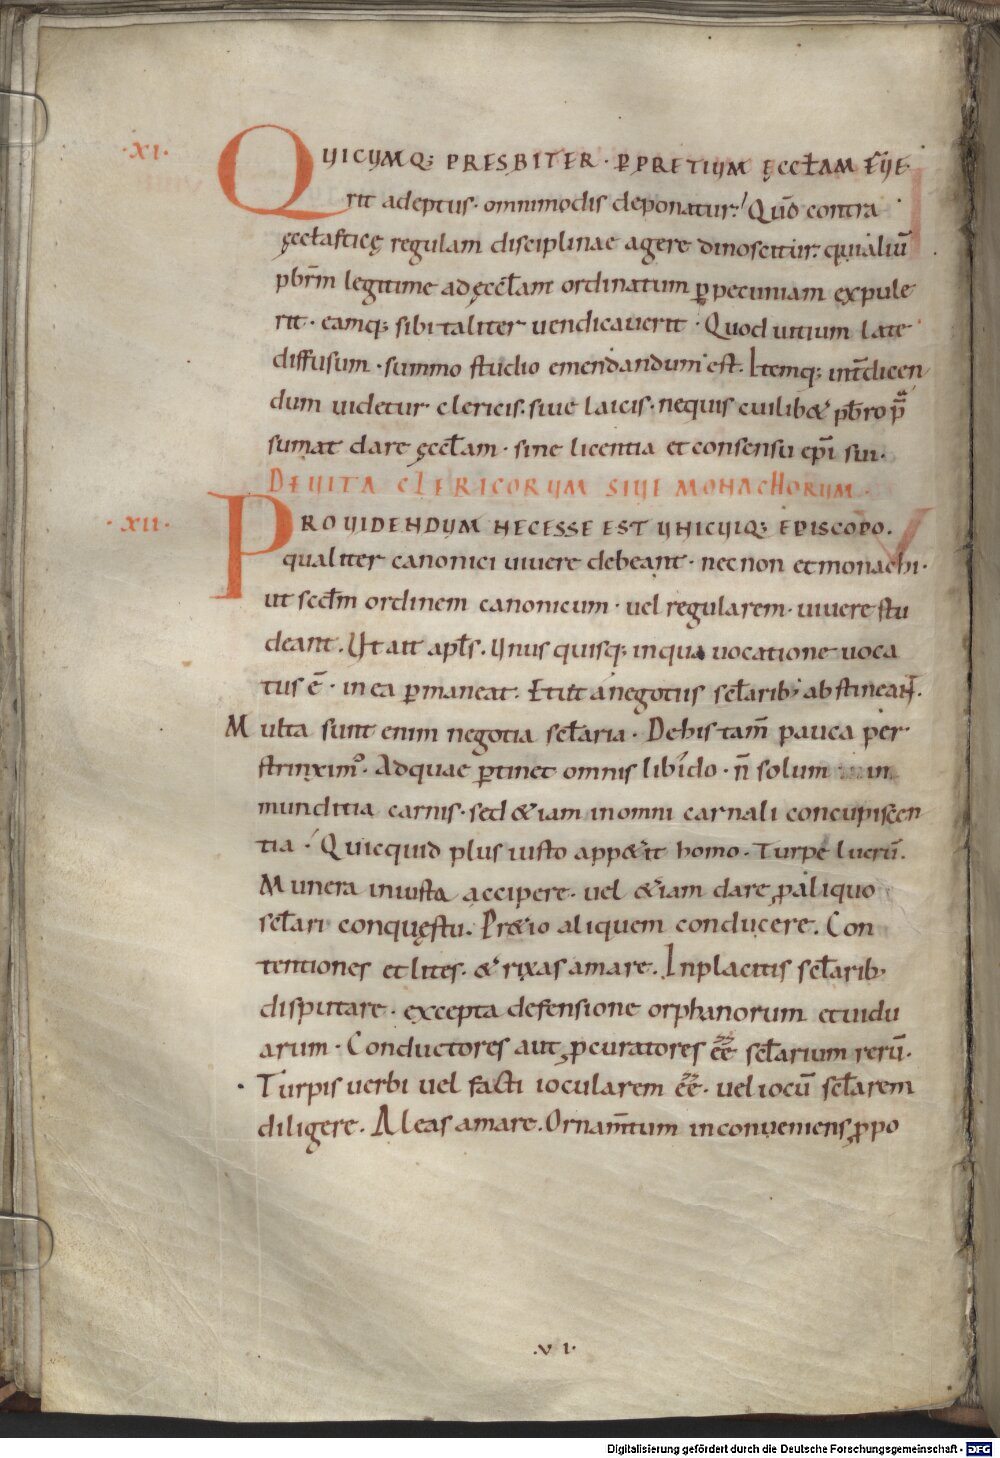 ·XI·
QUICUMQ; PRESBITER · P̲ PRETIUM ĘCCƚAM FUE
rit adeptus · omnimodis deponatur. Quō contra
ęccƚasticę regulam disciplinae agere dinoscitur. quia aliū
pbr̄m legitime ad ęccƚam ordinatum ꝑ pecuniam expule
rit · eamq; sibi taliter uendicauerit · Quod uitium late
diffusum · summo studio emendandum est. Itemq; int̄dicen
dum uidetur clericis · siue laicis · nequis cuilib& pb̄ro p̄
sumat dare ęccƚam · sine licentia et consensu ep̄i sui ·
DE UITA CLERICORUM SIUI MONACHORUM ·
·XII·
PROUIDENDUM NECESSE EST UNICUIQ; EPISCOPO.
qualiter canonici uiuere debeant · necnon et monachi ·
ut scdm̄ ordinem canonicum · uel regularem · uiuere stu
deant. Ut ait apƚs. Unus quisq; in qua uocatione uoca
tus ē · in ea ꝑmaneat. Et ut a negotiis scƚarib; abstineant.
Multa sunt enim negotia scƚaria · De his tam̄ pauca per
strinximꝰ · Ad quae ꝑtinet omnis libido · n̄ solum in
munditia carnis · sed &iam in omni carnali concupiscen
tia · Quicquid plus iusto app&it homo · Turpe lucrū.
Munera iniusta accipere · uel &iam dare ꝓ aliquo
scƚari conquęstu. Pr&io aliquem conducere. Con
tentiones et lites · & rixas amare. In placitis scƚarib;
disputare · excepta defensione orphanorum et uidu
arum · Conductores aut ꝓcuratores ee̅ scƚarium rerū.
· Turpis uerbi uel facti iocularem ee̅ · uel iocū scƚarem
diligere. Aleas amare. Ornam̄tum inconueniens ꝓpo
·VI·
Digitalisierung gefördert durch die Deutsche Forschungsgemeinschaft · DFG